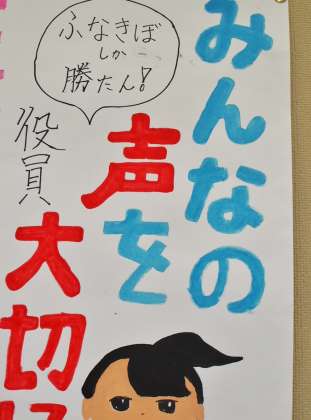 みんなの
声を
大切
ふなきぼ
しか
勝たん!
役員